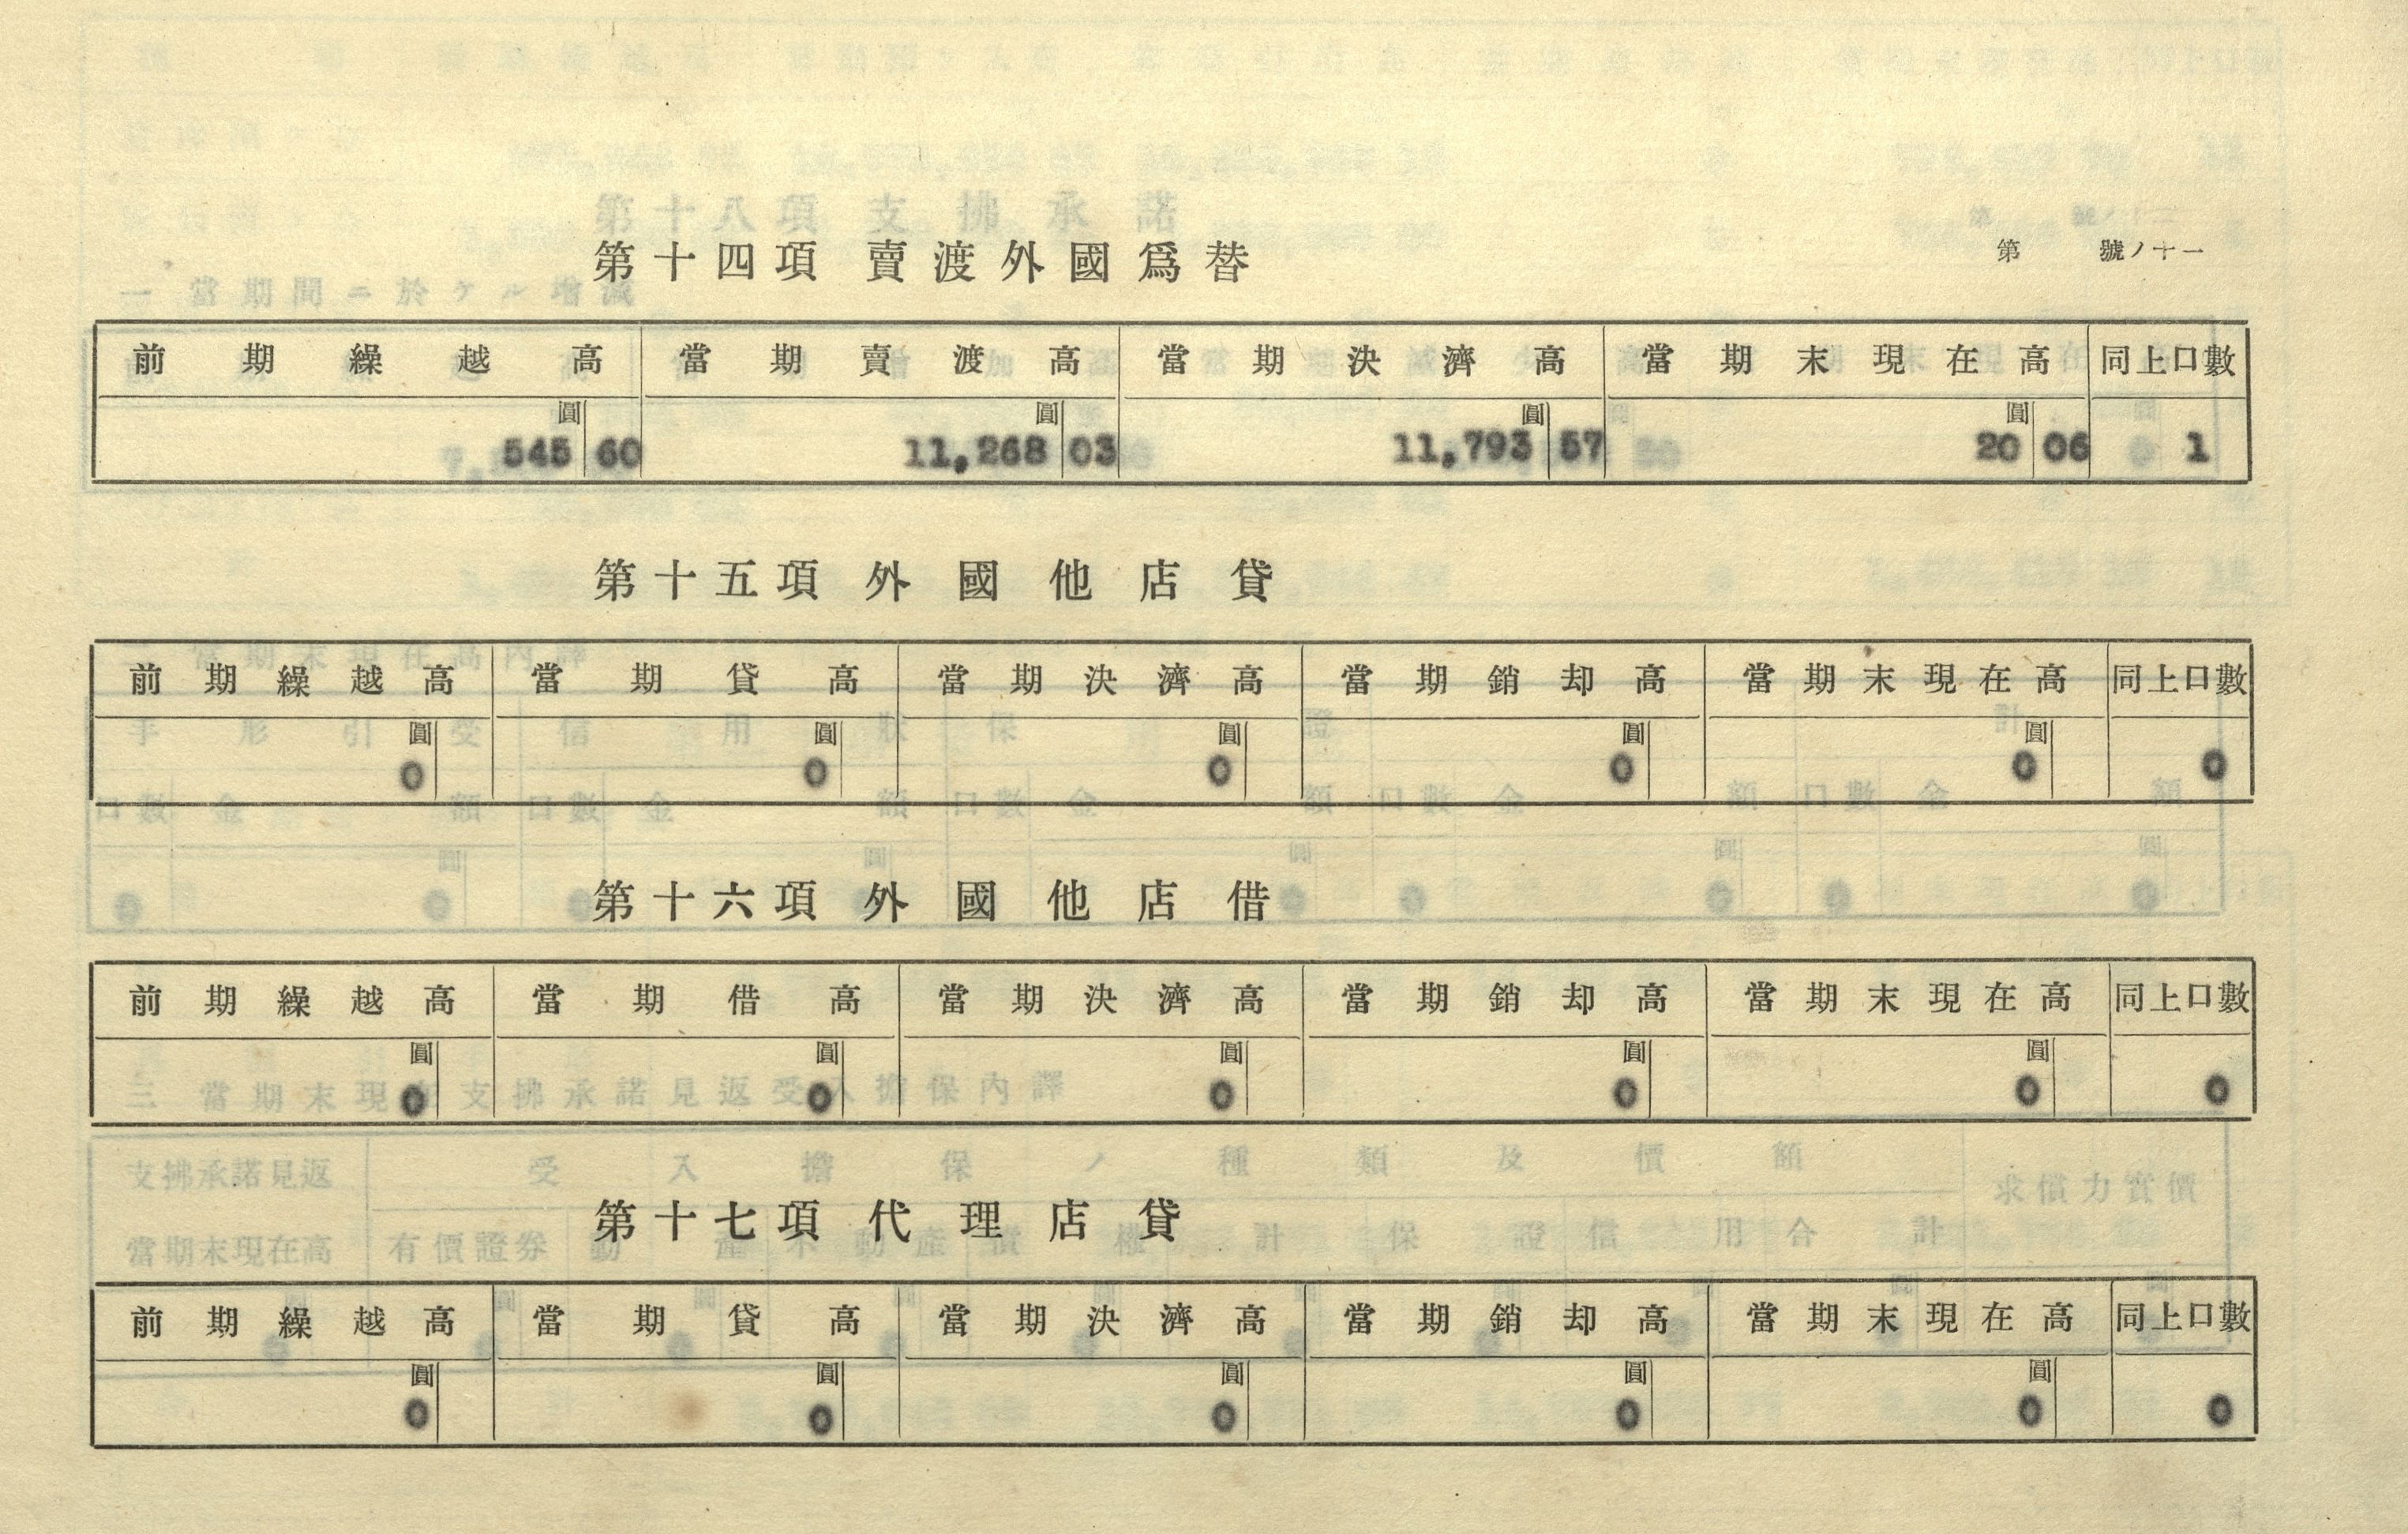 第十四項 賣渡外國爲替
第 號ノ十一
前期繰越高 當期賣渡高 當期決濟高 當期末現在高 同上口數
圓 圓 圓 圓
545 60 11,268 03 11,793 57 20 06 1
第十五項 外國他店貸
前期繰越高 當期貸高 當期決濟高 當期銷却高 當期末現在高 同上口數
圓 圓 圓 圓 圓
0 0 0 0 0 0
第十六項 外國他店借
前期繰越高 當期借高 當期決濟高 當期銷却高 當期末現在高 同上口數
圓 圓 圓 圓 圓
0 0 0 0 0 0
第十七項 代理店貸
前期繰越高 當期貸高 當期決濟高 當期銷却高 當期末現在高 同上口數
圓 圓 圓 圓 圓
0 0 0 0 0 0